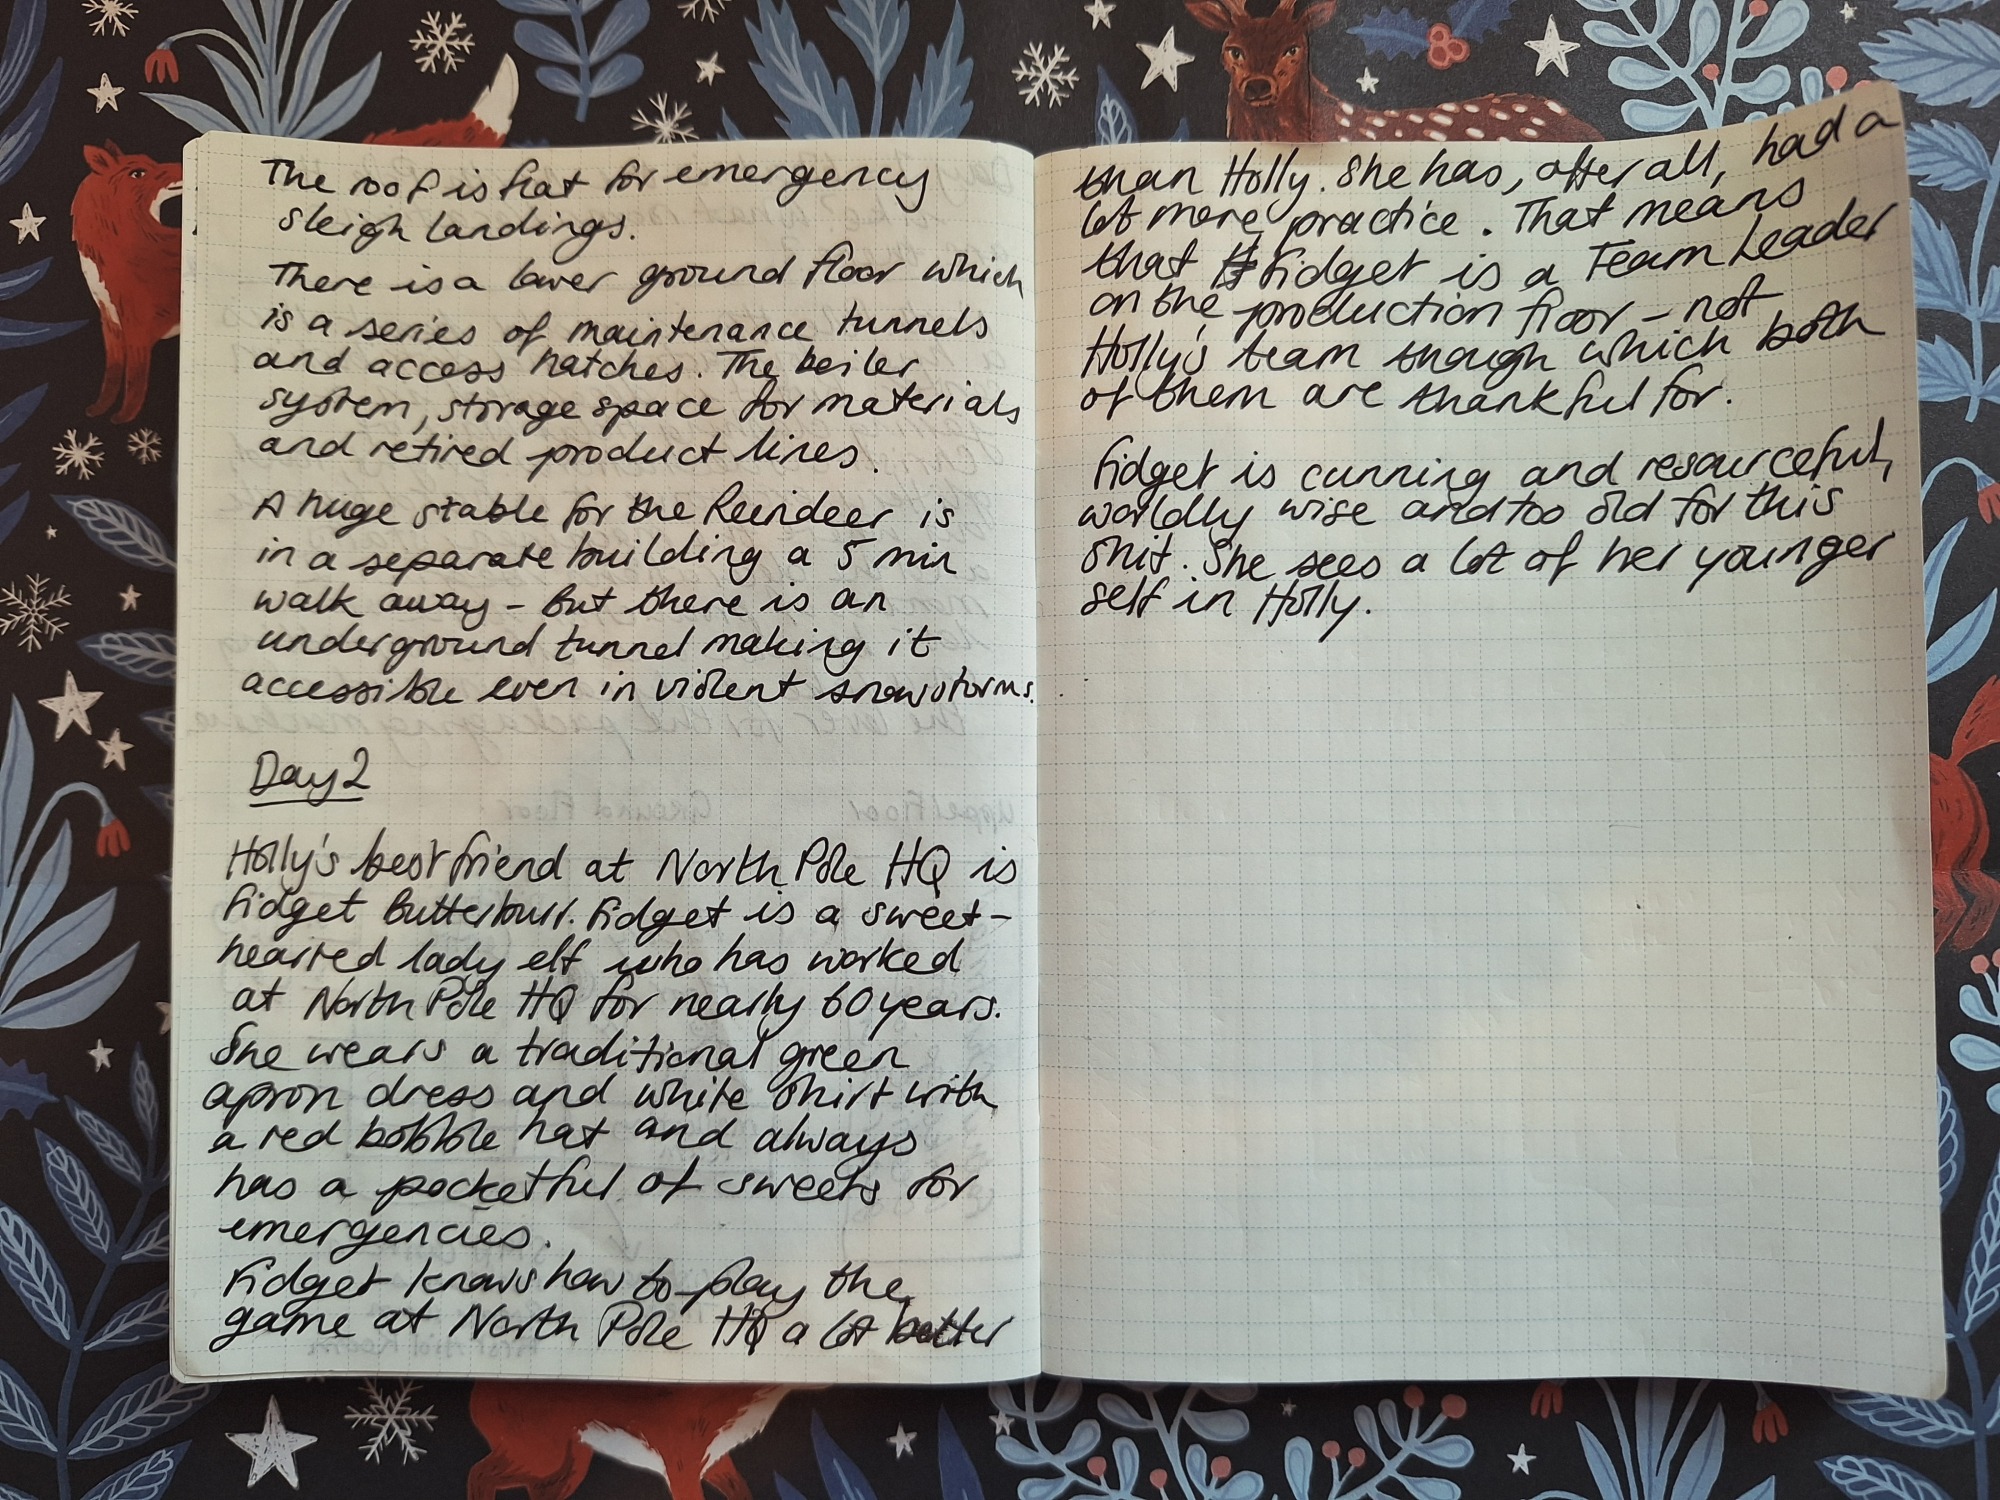 The roof is flat for emergency
sleigh landings.
There is a lower ground floor which
is a series of maintenance tunnels
and access hatches. The boiler
system, storage space for materials
and retired product lines.
A huge stable for the Reindeer is
in a separate building a 5 min
walk away – but there is an
underground tunnel making it
accessible even in violent snowstorms.
Day 2
Holly's best friend at North Pole HQ is
Fidget Butterburr. Fidget is a sweet-
hearted lady elf who has worked
at North Pole HQ for nearly 60 years.
She wears a traditional green
apron dress and white shirt with
a red bobble hat and always
has a pocketful of sweets for
emergencies.
Fidget knows how to play the
game at North Pole HQ a lot better
than Holly. She has, after all, had a
lot more practice. That means
that Fidget is a Team Leader
on the production floor – not
Holly's team though which both
of them are thankful for.
Fidget is cunning and resourceful,
worldly wise and too old for this
shit. She sees a lot of her younger
self in Holly.